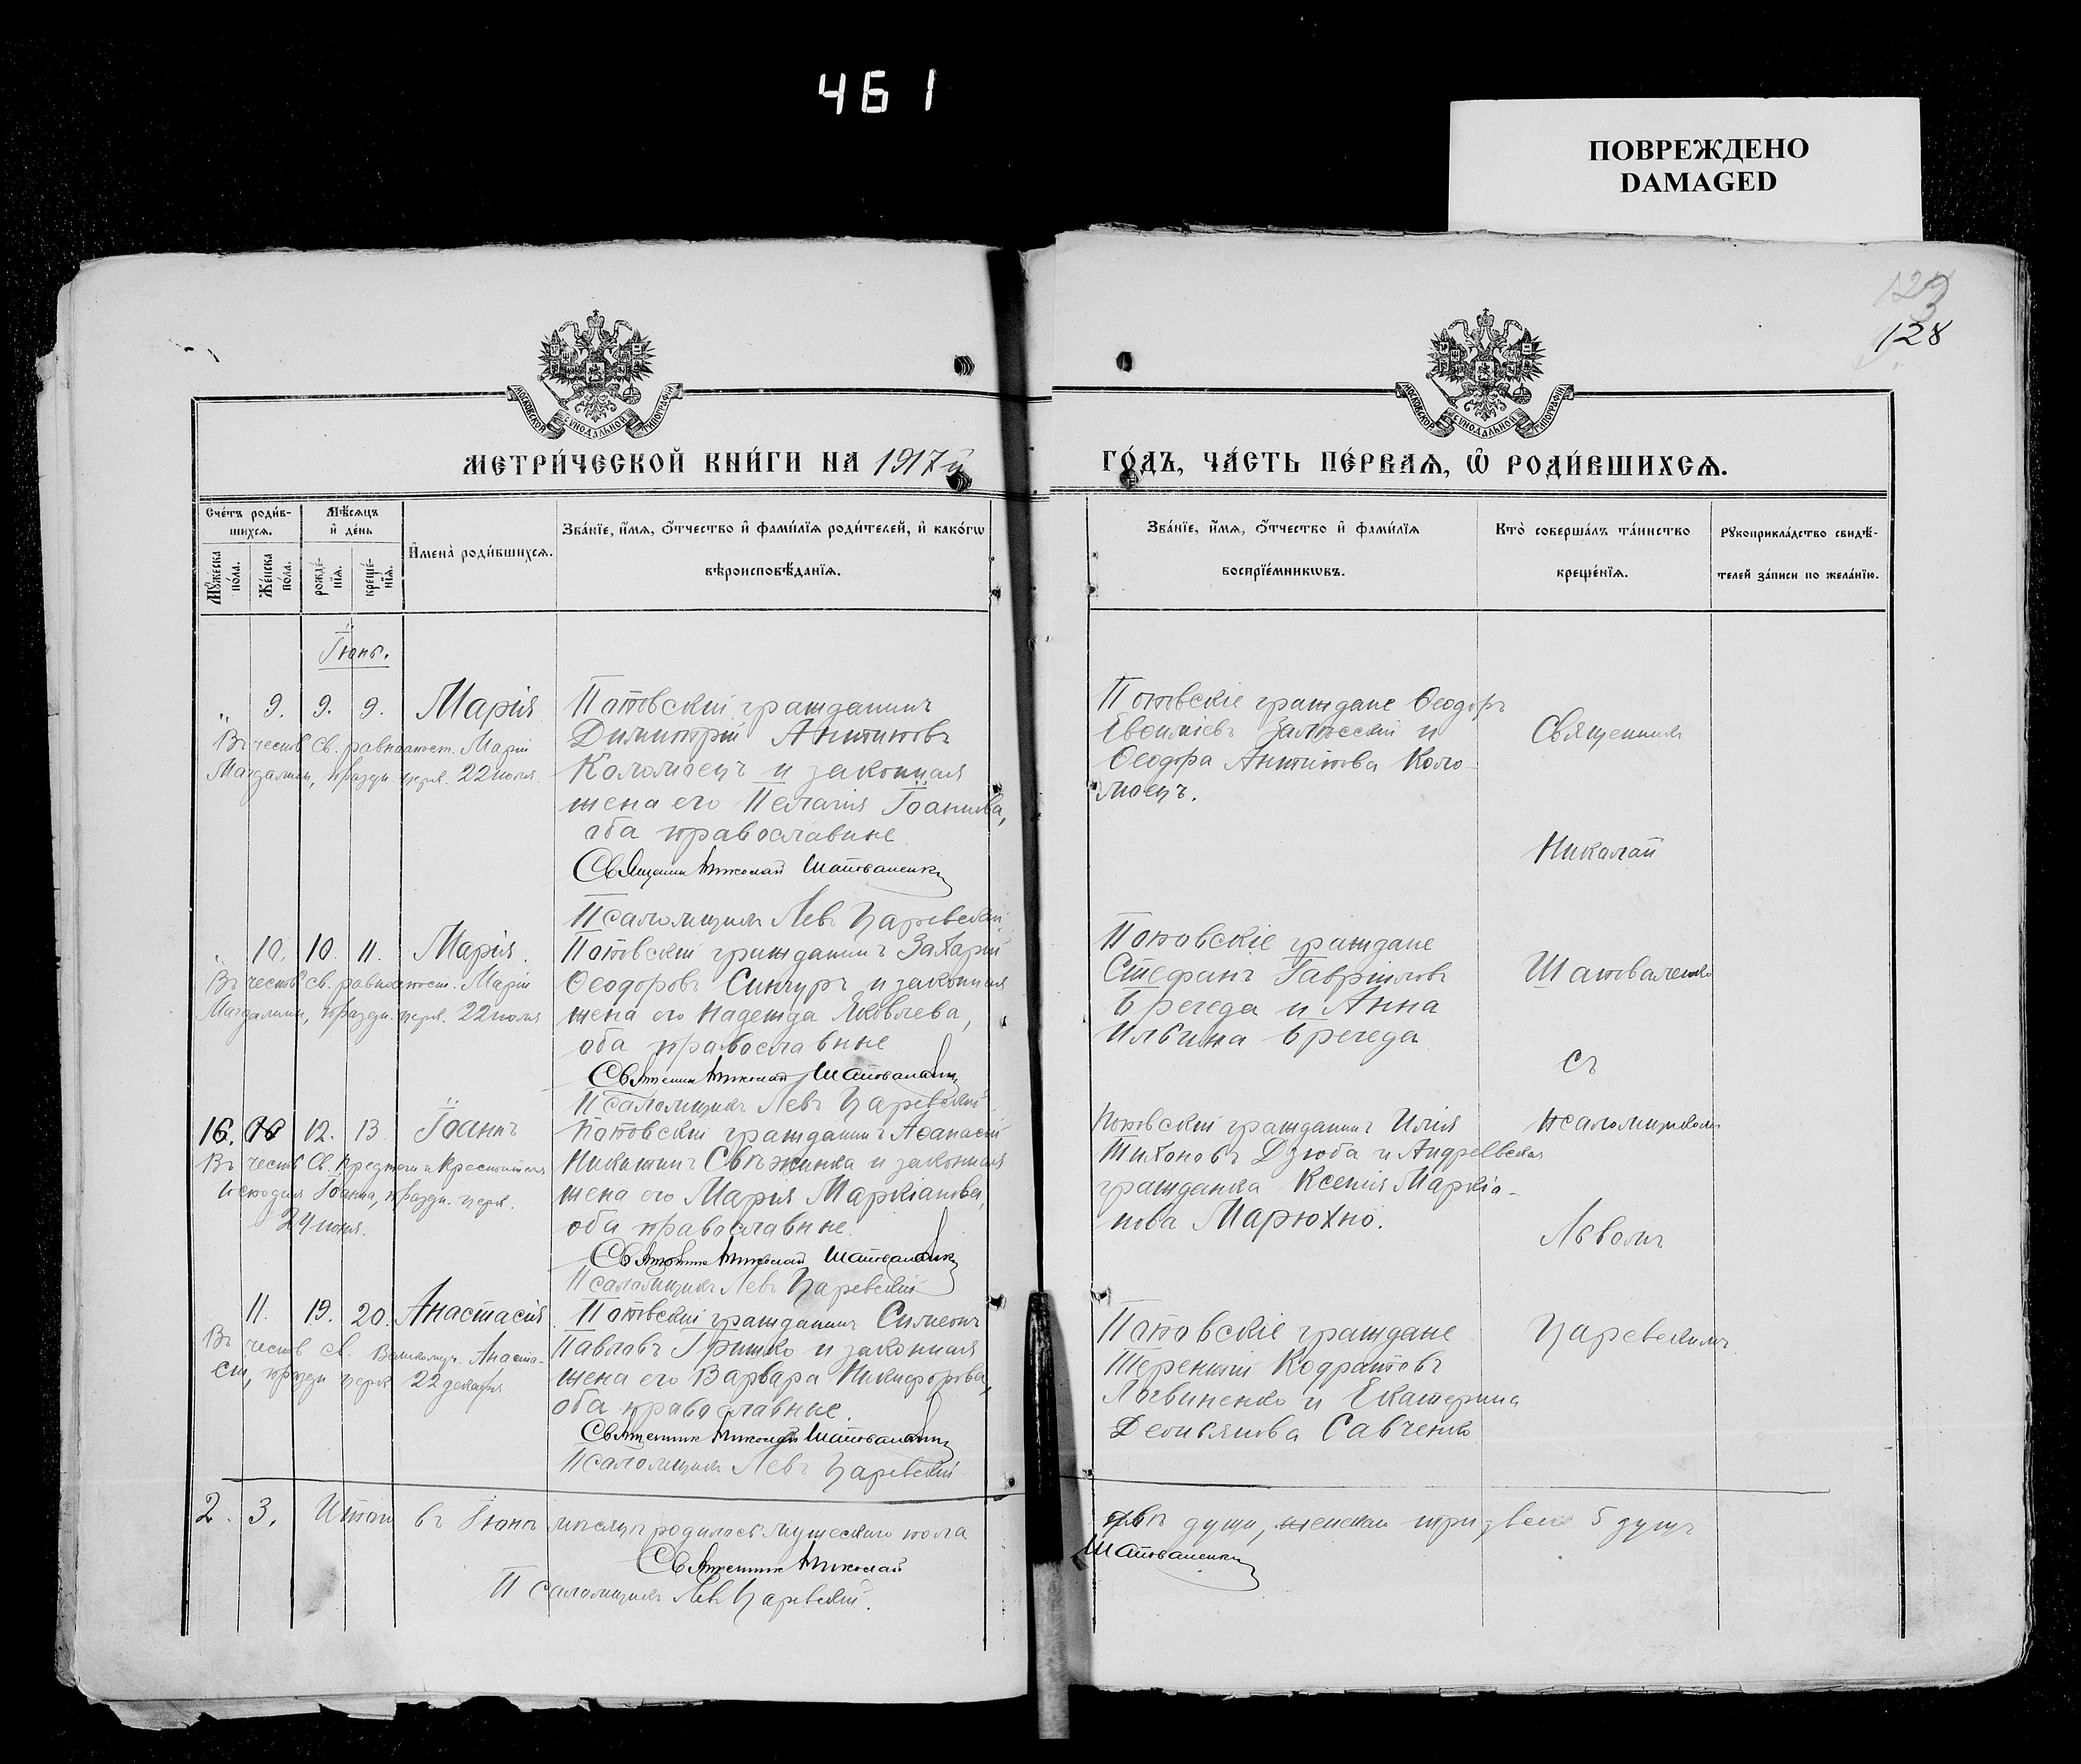 461
ПОВРЕЖДЕНО
DAMAGED
129
128
МОСКОВСКОЙ СѴНОДАЛЬНОЙ ТИПОГРАФІИ
МОСКОВСКОЙ СѴНОДАЛЬНОЙ ТИПОГРАФІИ
МЕТРИ́ЧЕСКОЙ КНИ́ГИ НА 1917 й
ГО́ДЪ, ЧА́СТЬ ПЕ́РВАѦ, Ѽ РОДИ́ВШИХСѦ.
Сче́тъ роди́в-
шихсѧ.
Мꙋ́жеска по́ла.
Же́нска по́ла.
Мѣ́сѧцъ
и҆ де́нь
рожде́-
нїѧ.
креще́-
нїѧ.
И҆мена̀ роди́вшихсѧ.
Зва́нїе, и҆́мѧ, ѻ҆́тчество и҆ фами́лїѧ роди́телей, и҆ како́гѡ
вѣроисповѣ́данїѧ.
Зва́нїе, и҆́мѧ, ѻ҆́тчество и҆ фами́лїѧ
воспрїе́мникѡвъ.
Кто̀ соверша́лъ та́инство
креще́нїѧ.
Рꙋкоприкла́дство свидѣ́-
телей за́писи по жела́нїю.
Іюнь.
„ 9. 9. 9. Марія
Въ честь Св. равноапост. Маріи
Магдалины, праздн. церк. 22 іюля.
Потокскій гражданинъ
Димитрій Антиповъ
Коломіецъ и законная
жена его Пелагія Іоаннова,
оба православные
Священникъ Николай Шаповаленко
Псаломщикъ Левъ Царевскій
Евѳиміевъ Залѣсскій и
Ѳеодора Антипова Коло-
міецъ.
Священникъ
Николай
„ 10. 10. 11. Марія.
Въ честь Св. равноапост. Маріи
Магдалины, праздн. церк. 22 іюля
гражданинъ Захарій
Ѳеодоровъ Синчуръ и законная
жена его Надежда Яковлева,
оба православные
Священникъ Николай Шаповаленко
Псаломщикъ Левъ Царевскій
граждане
Стефанъ Гавріиловъ
Бречеда и Анна
Ильина Бречеда
Шаповаленко
съ
16. 12. 13. Іоаннъ
Въ честь Св. Предтечи и Крестителя
Господня Іоанна, праздн. церк.
24 іюня.
гражданинъ Аѳанасій
Никитинъ Свѣжинка и законная
жена его Марія Маркіанова,
оба православные.
Священникъ Николай Шаповаленко
Псаломщикъ Левъ Царевскій
гражданинъ Илія
Тихоновъ Дзюба и Андреевская
гражданка Ксенія Маркіа-
нова Марюхно.
псаломщикомъ
Львомъ
11. 19. 20. Анастасія
Въ честь св. Великомуч. Анаста-
сіи, праздн. церк. 22 декабря
гражданинъ Симеонъ
Павловъ Гришко и законная
жена его Варвара Никифорова,
оба православные.
Священникъ Николай Шаповаленко
Псаломщикъ Левъ Царевскій
граждане
Терентій Кодратовъ
Логвиненко и Екатерина
Демьянова Савченко
Царевскимъ
2. 3. Итого въ Іюнѣ мѣсяцѣ родилось мужескаго пола
двѣ души, женскаго три, всего 5 душъ
Священникъ Николай Шаповаленко
Псаломщикъ Левъ Царевскій.